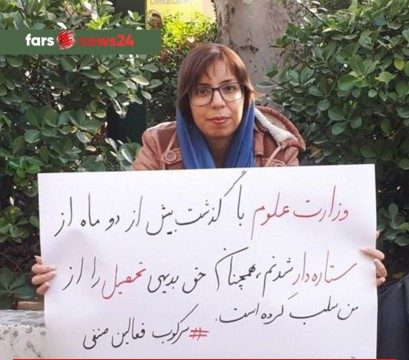 fars news24
وزارت علوم با گذشت بیش از دو ماه از
ستاره‌دار شدنم، همچنان حق بدیهی تحصیل را از
من سلب کرده است.
#سرکوب فعالین صنفی